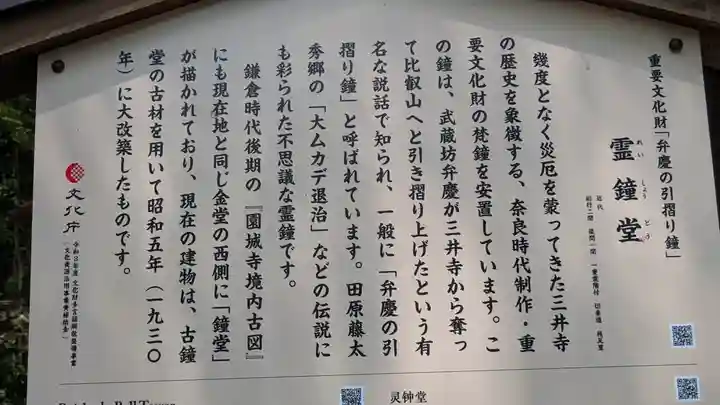 重要文化財「弁慶の引摺り鐘」
霊鐘堂
れいしょうどう
近代
桁行二間 梁間一間 一重裳階付 切妻造 桟瓦葺
幾度となく災厄を蒙ってきた三井寺
の歴史を象徴する、奈良時代制作・重
要文化財の梵鐘を安置しています。こ
の鐘は、武蔵坊弁慶が三井寺から奪っ
て比叡山へと引き摺り上げたという有
名な説話で知られ、一般に「弁慶の引
摺り鐘」と呼ばれています。田原藤太
秀郷の「大ムカデ退治」などの伝説に
も彩られた不思議な霊鐘です。
鎌倉時代後期の『園城寺境内古図』
にも現在地と同じ金堂の西側に「鐘堂」
が描かれており、現在の建物は、古鐘
堂の古材を用いて昭和五年（一九三〇
年）に大改築したものです。
文化庁
令和2年度 文化財多言語解説整備事業
（文化資源活用事業費補助金）
Bell Tower
灵钟堂